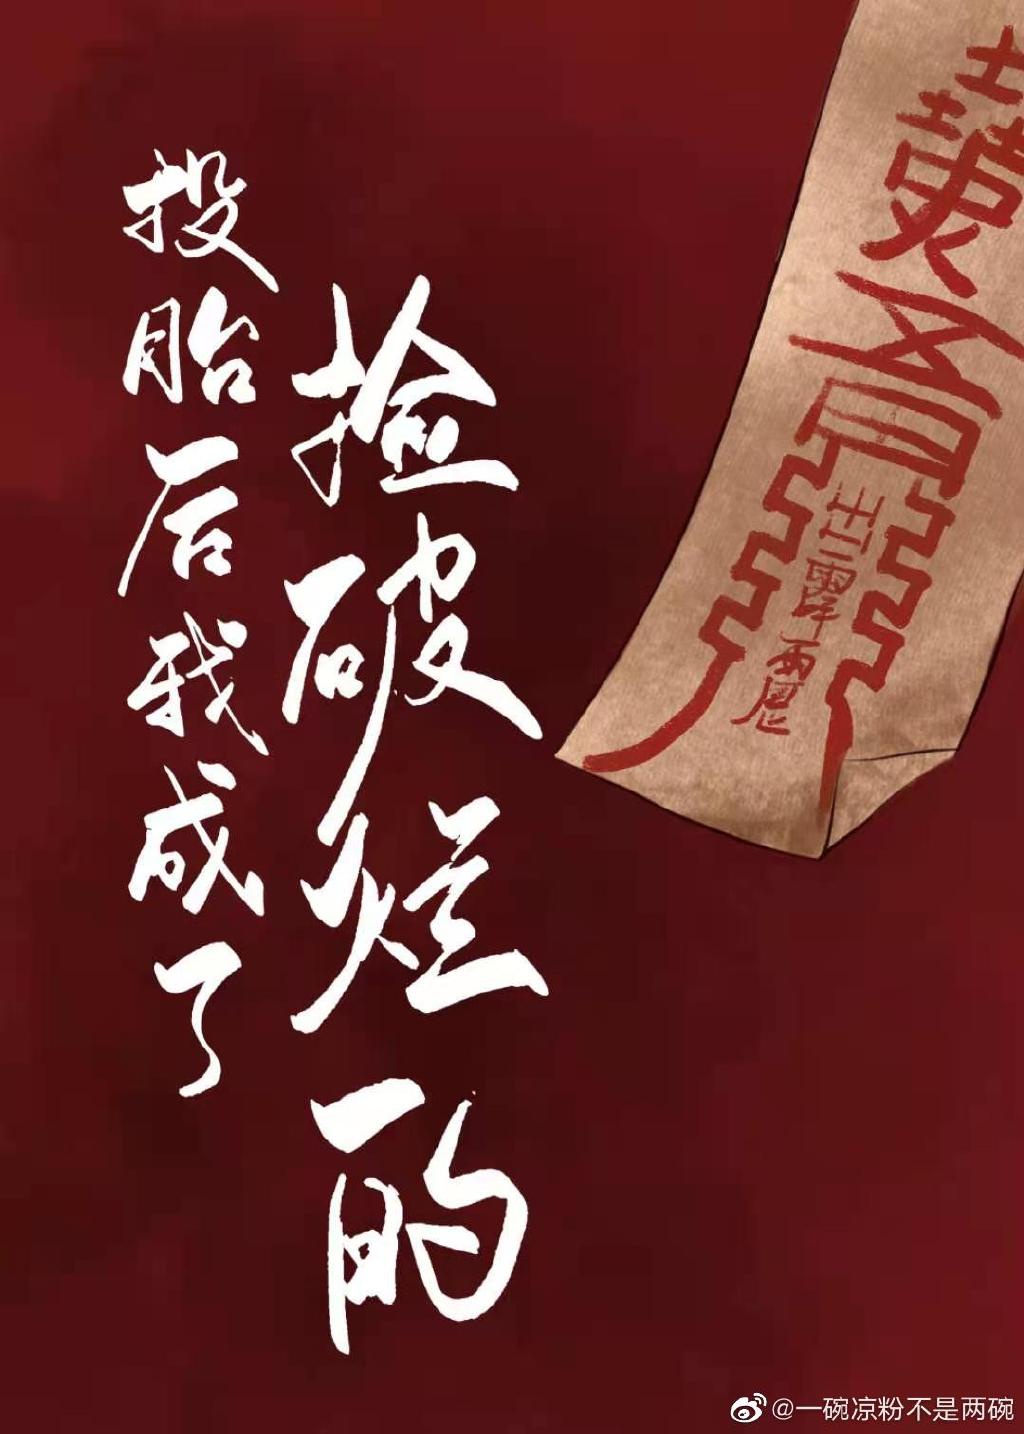 投胎后我成了
捡破烂的
@一碗凉粉不是两碗